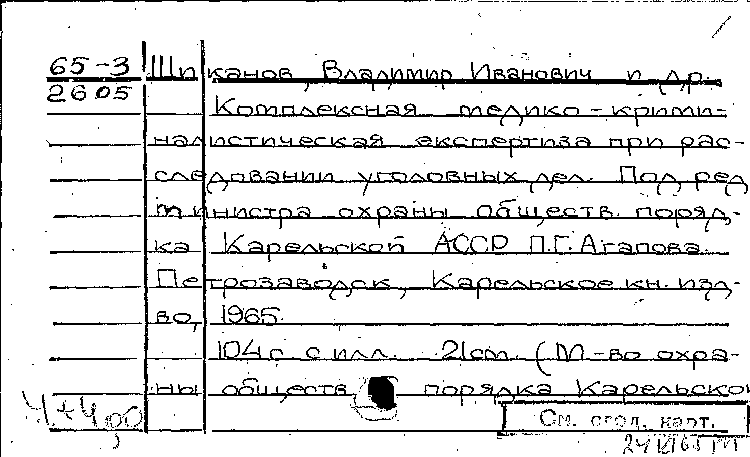 65-3 Шпиканов, Владимир Иванович и др.
2605
Комплексная медико-крими-
налистическая експертиза при рас-
следовании уголовных дел. Под ред
министра охраны обществ. поряд-
ка Карельской АССР П.Г. Агапова.
Петрозаводск, Карельское кн. изд-
во, 1965.
104 с с илл. 21 cm (М-во охра-
ны обществ порядка Карельской
См. след. карт.